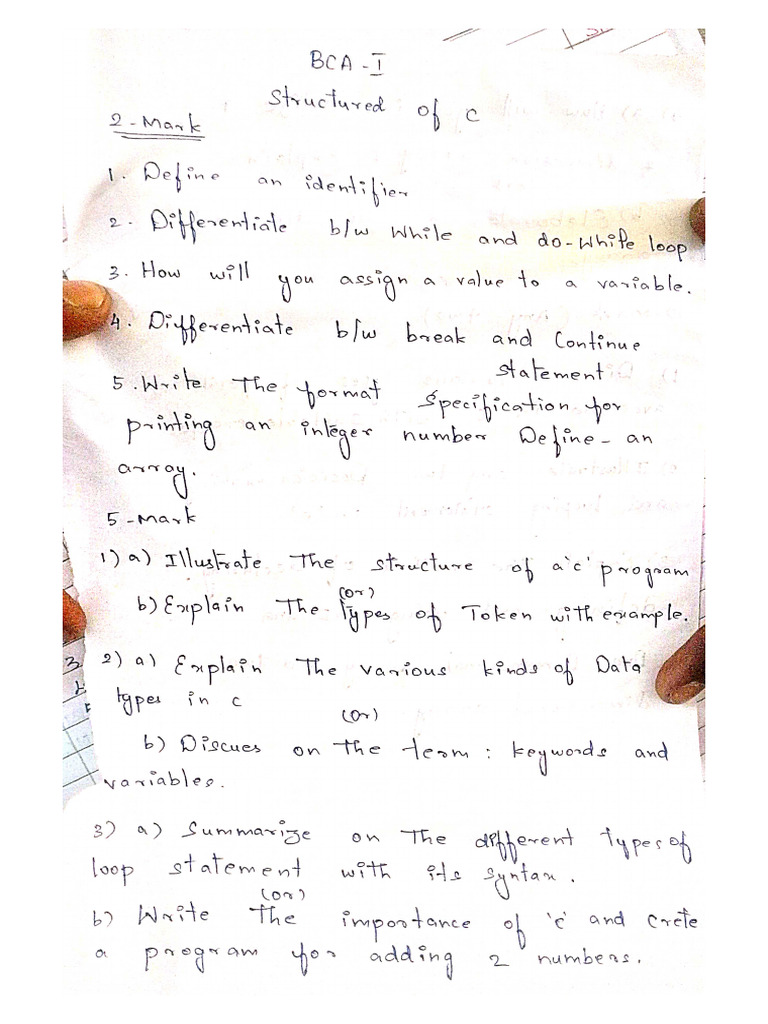 BCA - I
Structured of c
2 - Mark
1. Define an identifier
2. Differentiate b/w While and do-While loop
3. How will you assign a value to a variable.
4. Differentiate b/w break and Continue
statement
5. Write The format specification for
printing an integer number Define - an
array.
5 - Mark
1) a) Illustrate The structure of a 'c' program
(or)
b) Explain The Types of Token with example.
2) a) Explain The various kinds of Data
types in c
(or)
b) Discues on The term : keywords and
variables.
3) a) Summarize on The different types of
loop statement with its syntax.
(or)
b) Write The importance of 'c' and crete
a program for adding 2 numbers.